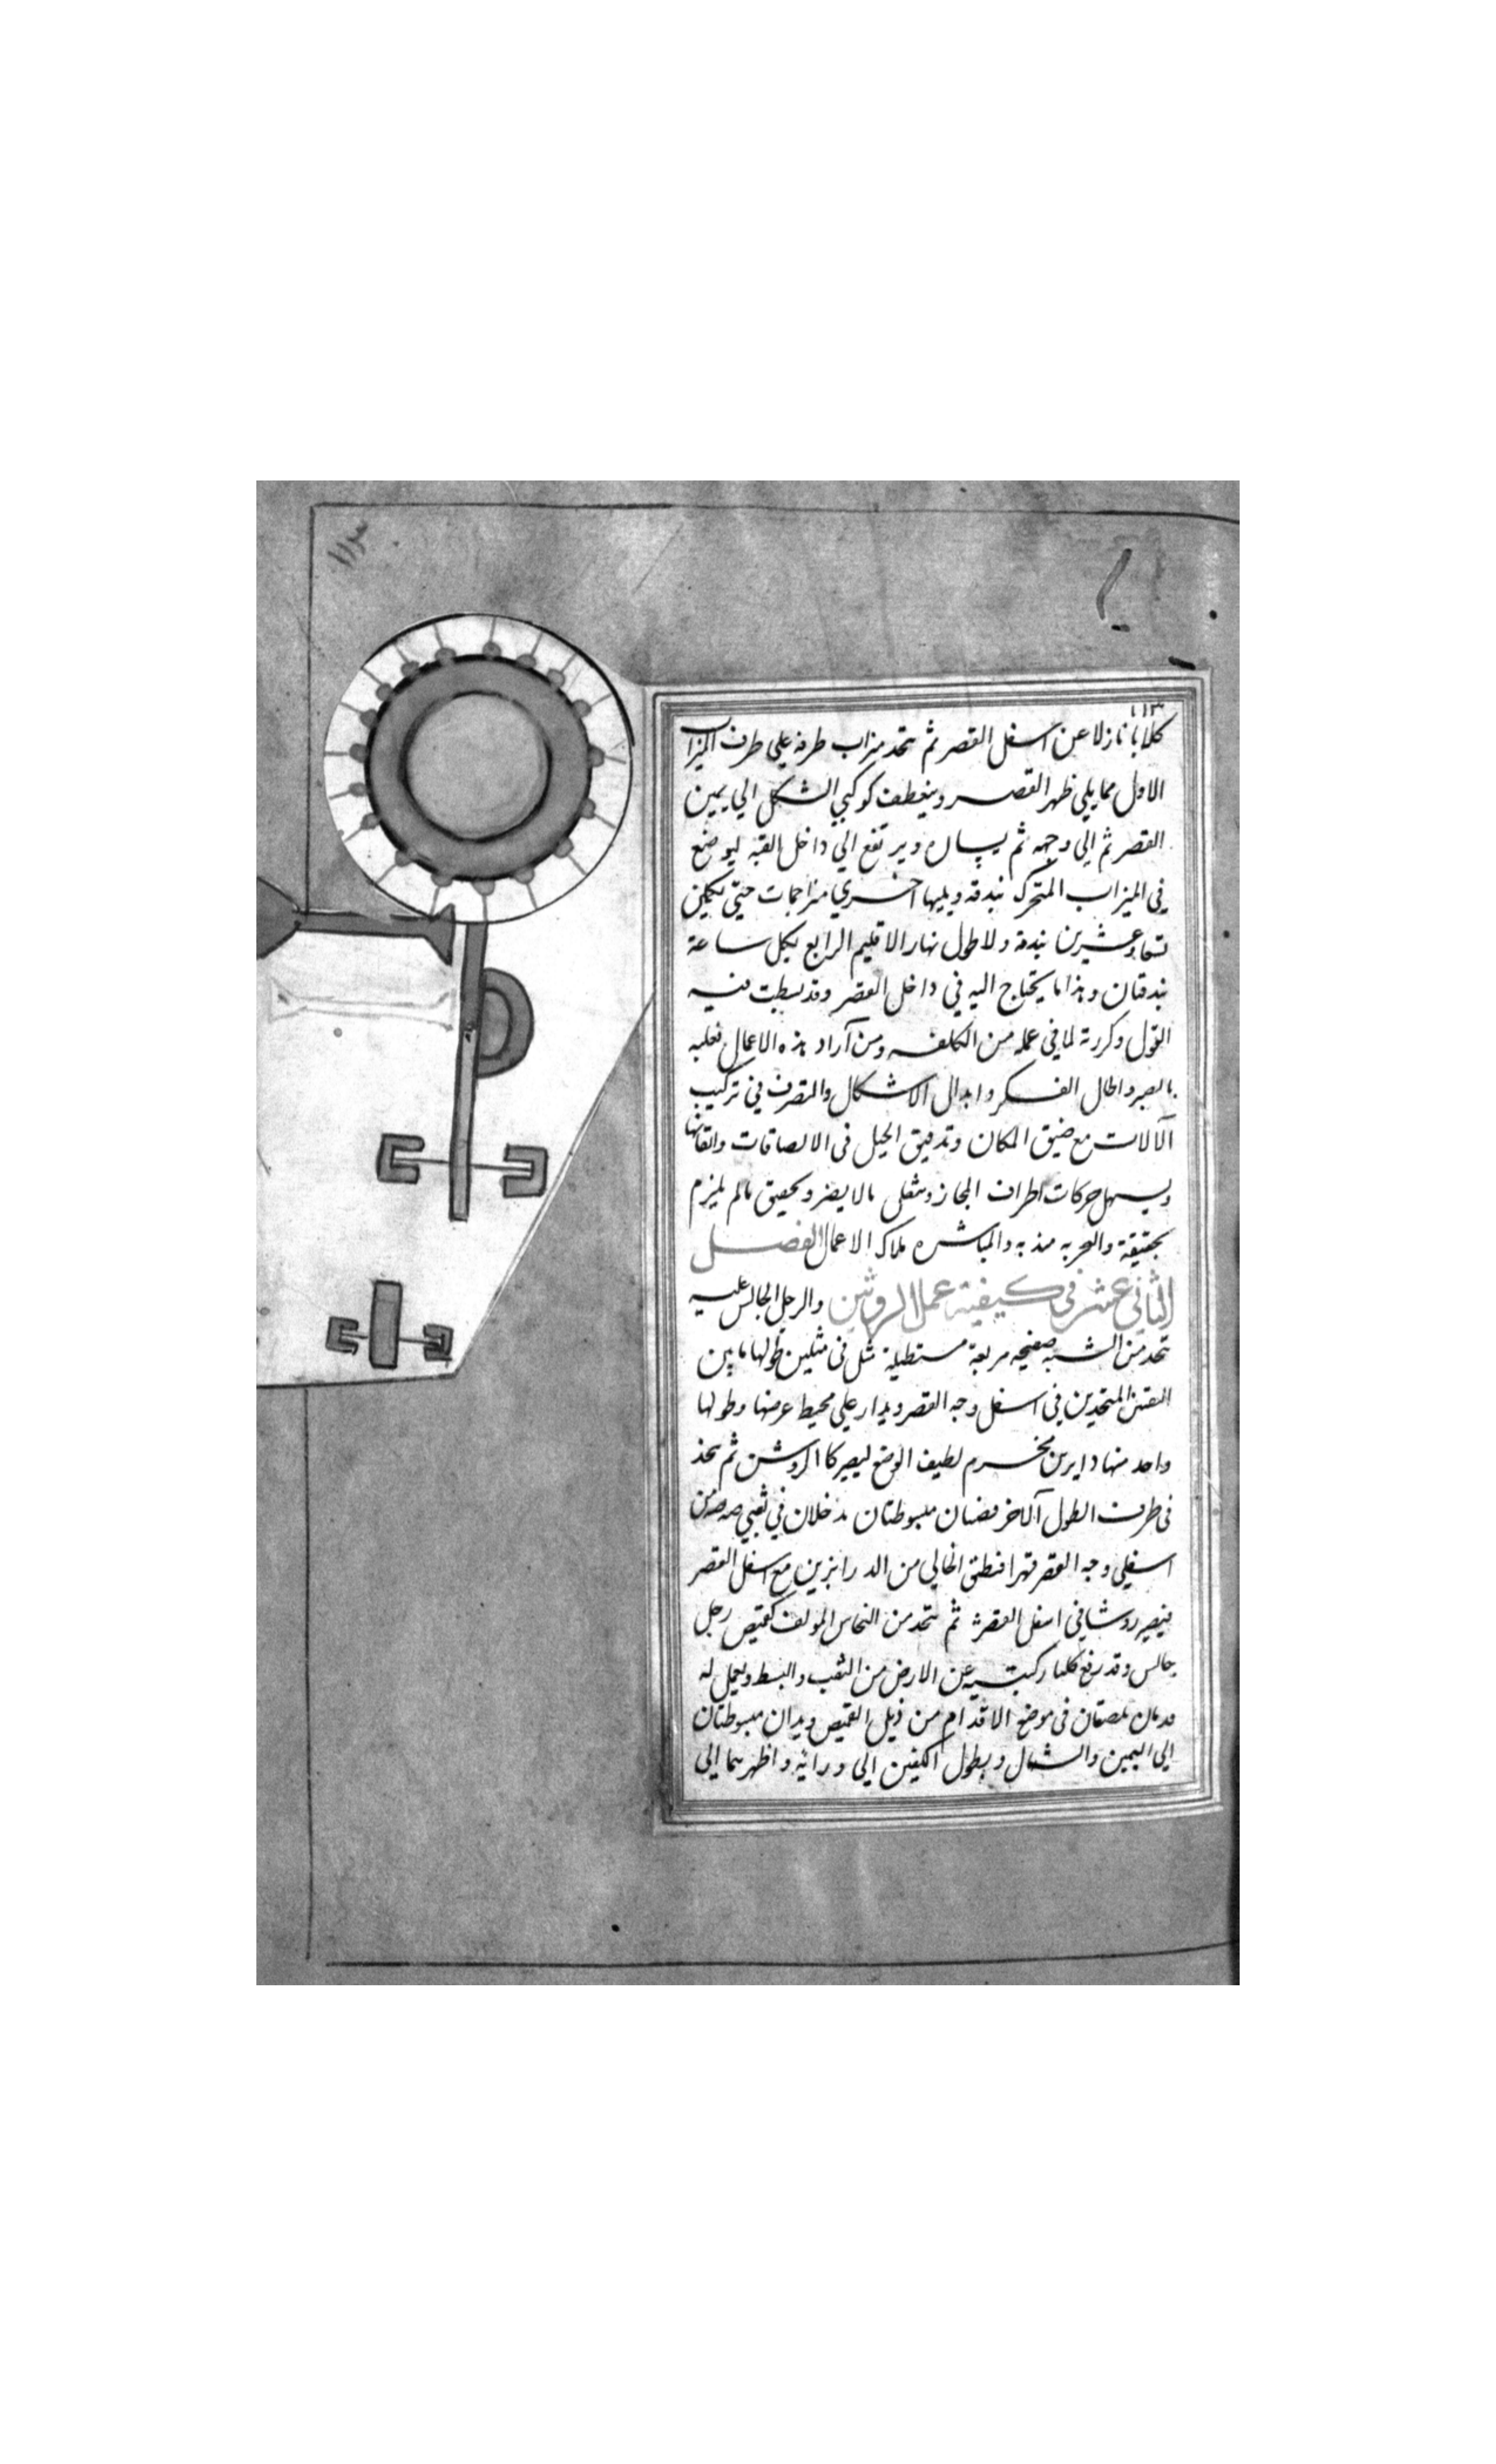 ١١٣
كلابا نازلا عن اسفل القصر ثم تتخذ ميزاب طرفه يلي طرف الميزاب
الاول مما يلي ظهر القصر وينعطف كوكبي الشكل الي يمين
القصر ثم الي وجهه ثم يساره ويرتفع الي داخل القبه ليوضع
في الميزاب المتحرك بندقه ويليها اخري مزاحمات حتي يكمل
تسعا وعشرين بندقة ولاطول نهار الاقليم الرابع لكل ساعة
بندقتان وهذا ما يحتاج اليه في داخل القصر وقد بسطت فيه
القول وكررته لما في عمله من الكلفه ومن آراد هذه الاعمال فعليه
بالصبر واطال الفكر وابدال الاشكال والتصرف في تركيب
الآلات مع ضيق المكان وتدقيق الحيل في الالصاقات واتقانها
ويسهل حركات اطراف المجاز وثقلي مالا يضر وتحقيق مالم يلزم
تحقيقة والتجربه مهذبه والمباشره ملاك الاعمال الفصل
الثاني عشر في كيفية عمل الروشن والرجل الجالس عليه
تتخذ من الشبه صفيحه مربعة مستطيلة مثل في مثلين طولها ما بين
النقبين المتخذين في اسفل وجه القصر ويدار علي محيط عرضها وطولها
واحد منها دايرين مخرم لطيف الوضع ليصير كالروشن ثم يتخذ
في طرف الطول آلاخر مبسوطتان مدخلان في ثقبي
اسفلي وجه القصر قهرا فنطبق الخالي من الدرابزين مع اسفل القصر
فيصير روشنا في اسفل القصر ثم تتخذ من النحاس المولف كقميص رجل
جالس وقد رفع كلتا ركبتيه عن الارض من الثقب والبسط ويعمل له
قدمان تلصقان في موضع الاقدام من ذيل القميص ويدان مبسوطتان
الي اليمين والشمال وبطول الكفين الي ورائه واظهرهما الي